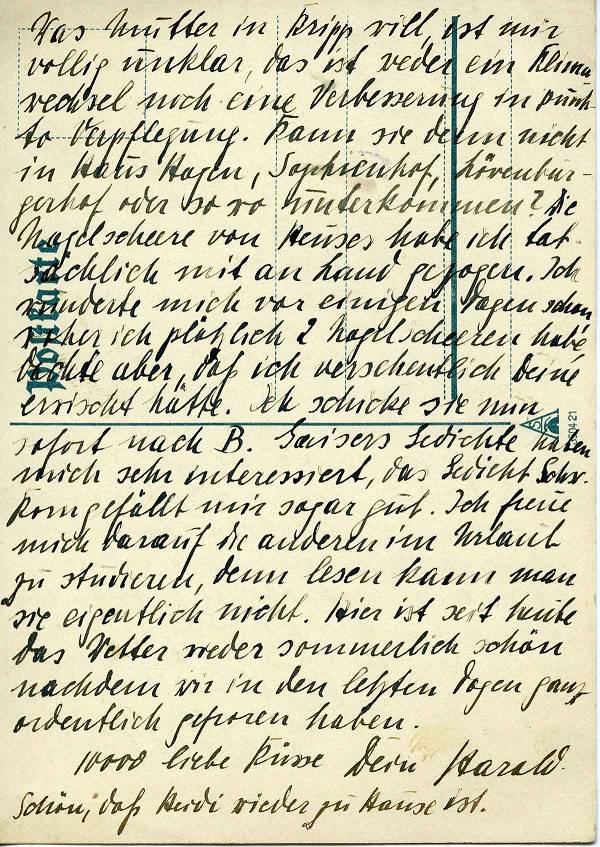 Was Mutter in Kripp will, ist mir
völlig unklar, das ist weder ein Klima
wechsel noch eine Verbesserung in punk-
to Verpflegung. Kann sie denn nicht
in Haus Hagen, Sophienhof, Lövenbur-
gerhof oder so wo unterkommen? Die
Nagelscheere von Heuses habe ich tat-
sächlich mit an Land gezogen. Ich
wunderte mich vor einigen Tagen schon
woher ich plötzlich 2 Nagelscheeren habe,
dachte aber, daß ich versehentlich Deine
erwischt hätte. Ich schicke sie nun
sofort nach B. Gaisers Gedichte haben
mich sehr interessiert, das Gedicht Schw.
Korn gefällt mir sogar gut. Ich freue
mich darauf die anderen im Urlaub
zu studieren, denn lesen kann man
sie eigentlich nicht. Hier ist seit heute
das Wetter wieder sommerlich schön
nachdem wir in den letzten Tagen ganz
ordentlich gefroren haben.
10000 liebe Küsse Dein Harald.
Schön, daß Heidi wieder zu Hause ist.
Postkarte